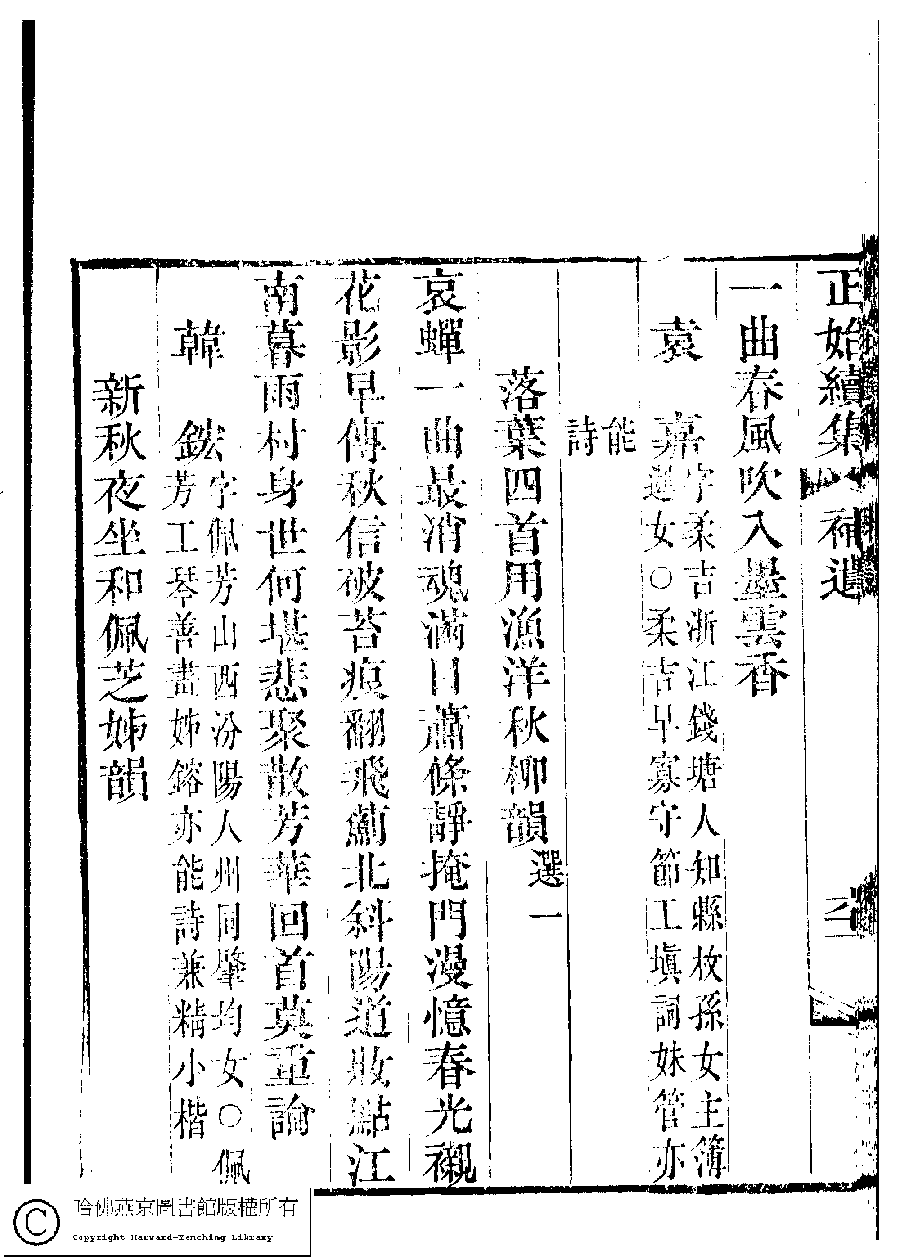 正始續集 補遺
一曲春風吹入墨雲香
袁嘉 字柔吉浙江錢塘人知縣枚孫女主簿
選女○柔吉早寡守節工填詞妹管亦
能
詩
落葉四首用漁洋秋柳韻 選一
哀蟬一曲最消魂滿目蕭條靜掩門漫憶春光襯
花影早傳秋信破苔痕翻飛薊北斜陽道敗點江
南暮雨村身世何堪悲聚散芳華回首莫重論
韓鋐 字佩芳山西汾陽人州同肇均女○佩
芳工琴善畫姊鎔亦能詩兼精小楷
新秋夜坐和佩芝姊韻
哈佛燕京圖書館版權所有
Copyright Harvard-Yenching Library